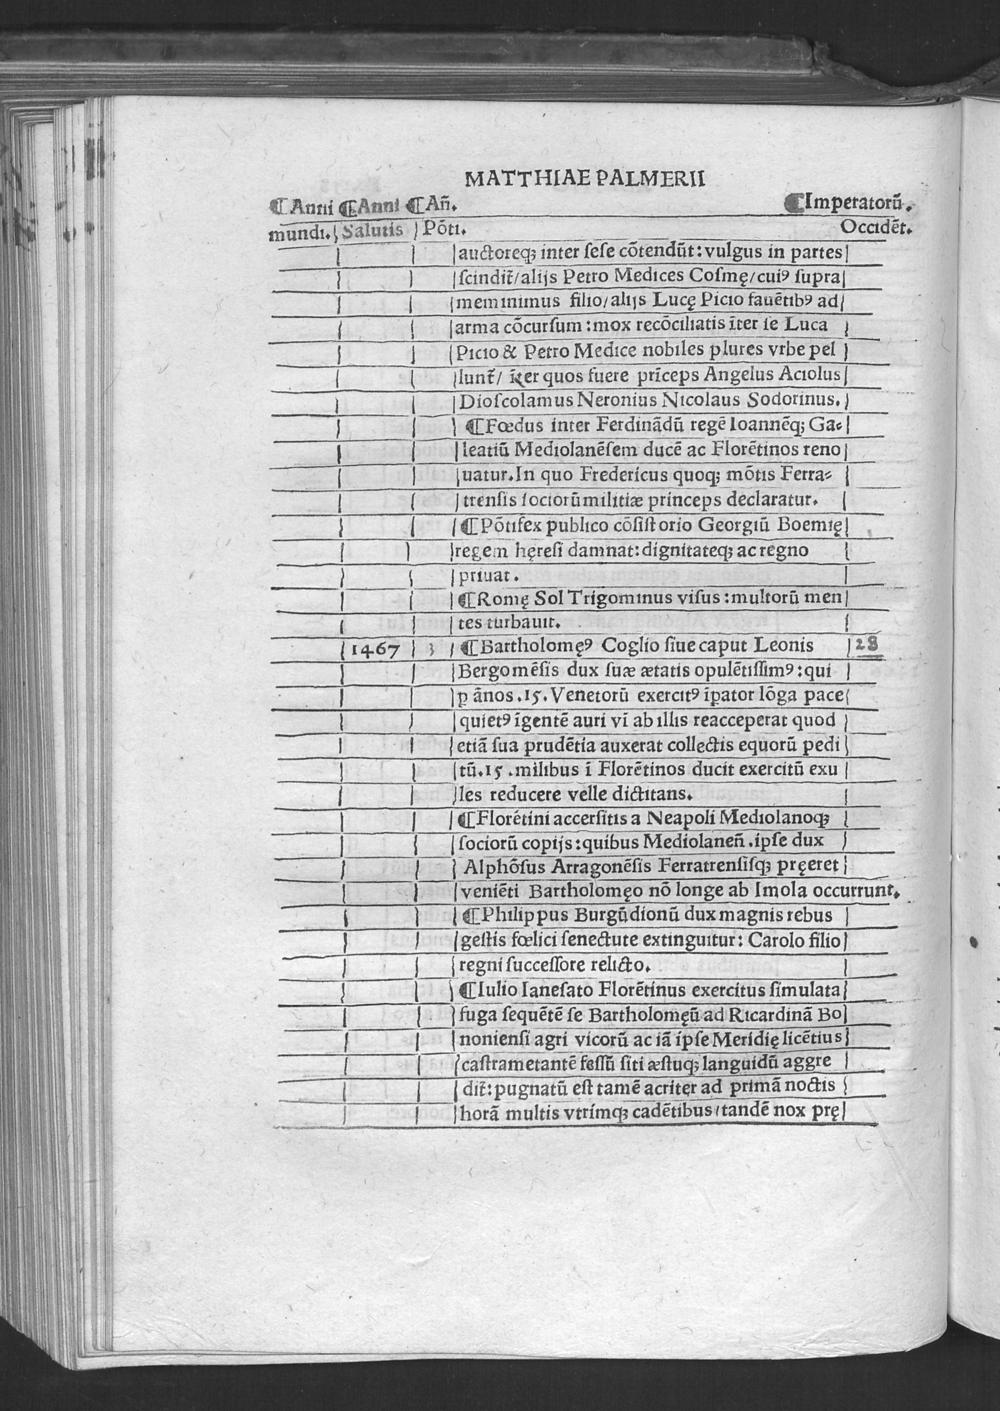 MATTHIAE PALMERII
¶Anni ¶Anni ¶Añ. ¶Imperatorũ.
mundi. Salutis Põti. Occidẽt.
auctoreqꝫ inter ſeſe cõtendũt: vulgus in partes
ſcindit̃/alijs Petro Medices Coſmę/cuiꝰ ſupra
meminimus filio/alijs Lucę Picio fauẽtibꝰ ad
arma cõcurſum: mox recõciliatis ĩter ſe Luca
Picio & Petro Medice nobiles plures vrbe pel
lunt̃/ ĩter quos fuere prĩceps Angelus Aciolus
Dioſcolamus Neronius Nicolaus Sodorinus.
¶Fœdus inter Ferdinãdũ regẽ Ioannẽqꝫ Ga⸗
leatiũ Mediolanẽſem ducẽ ac Florẽtinos reno
uatur. In quo Fredericus quoqꝫ mõtis Ferra⸗
trenſis ſociorũ militiæ princeps declaratur.
¶Põtifex publico cõſiſtorio Georgiũ Boemię
regem hęreſi damnat: dignitateqꝫ ac regno
priuat.
¶Romę Sol Trigominus viſus: multorũ men
tes turbauit.
1467 3 ¶Bartholomęꝰ Coglio ſiue caput Leonis 28
Bergomẽſis dux ſuæ ætatis opulẽtiſſimꝰ: qui
ꝑ ãnos .15. Venetorũ exercitꝰ ĩpator lõga pace
quietꝰ ĩgentẽ auri vĩ ab illis reacceperat quod
etiã ſua prudẽtia auxerat collectis equorũ pedi
tũ .15. milibus ĩ Florẽtinos ducit exercitũ exu
les reducere velle dictitans.
¶Florẽtini accerſitis a Neapoli Mediolanoqꝫ
ſociorũ copijs: quibus Mediolaneñ. ipſe dux
Alphõſus Arragonẽſis Ferratrenſiſqꝫ pręeret
veniẽti Bartholomęo nõ longe ab Imola occurrunt.
¶Philippus Burgũdionũ dux magnis rebus
geſtis fœlici ſenectute extinguitur: Carolo filio
regni ſucceſſore relicto.
¶Iulio Ianeſato Florẽtinus exercitus ſimulata
fuga ſequẽtẽ ſe Bartholomęũ ad Ricardinã Bo
nonienſi agri vicorũ ac iã ipſe Meridię licẽtius
caſtrametantẽ feſſũ ſiti æſtuqꝫ languidũ aggre
dit̃: pugnatũ eſt tamẽ acriter ad primã noctis
horã multis vtrimqꝫ cadẽtibus/tandẽ nox prę